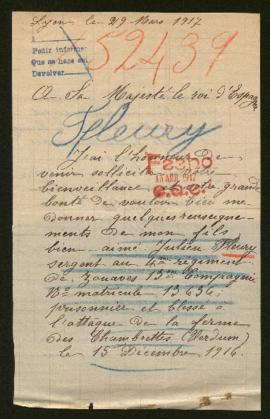 Lyon le 29 Mars 1917
Pedir informe
Que se hace en
Devolver
52439
A Sa Majesté le roi d'Espagne
Fleury
J'ai l'honneur de
venir solliciter
bienveillance votre grande
bonté de vouloir bien me
donner quelques renseigne
ments de mon fils
bien aimé Julien Fleury
sergent au 4me régiment
de Zouaves 15me Compagnie
No matricule 13636
prisonnier et blessé à
l'attaque de la ferme
des Chambrettes (Verdun)
le 15 Décembre 1916.
Fecho
13 ABR 1917